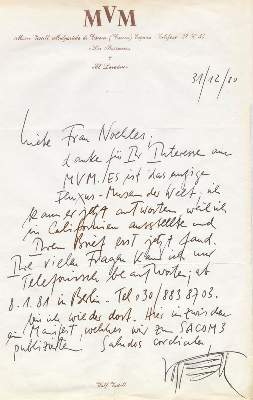 MVM
Museo Vostell Malpartida de Cáceres (Cáceres) España
Los Barruecos
31/12/80
Liebe Frau Noehles,
danke für Ihr Interesse am
MVM. Es ist das einzige
Fluxus-Museum der Welt. ich
kann erst jetzt antworten, weil ich
in Californien ausstellte und
Ihren Brief erst jetzt fand.
Ihre vielen Fragen kann ich nur
Telefonisch beantworten; ab
8.1.81 in Berlin. Tel 030/883 8703.
bin ich wieder dort. Hier inzwischen
ein Manifest, welches wir zu SACOM 3
publizierten Saludos cordiales,
Wolf Vostell